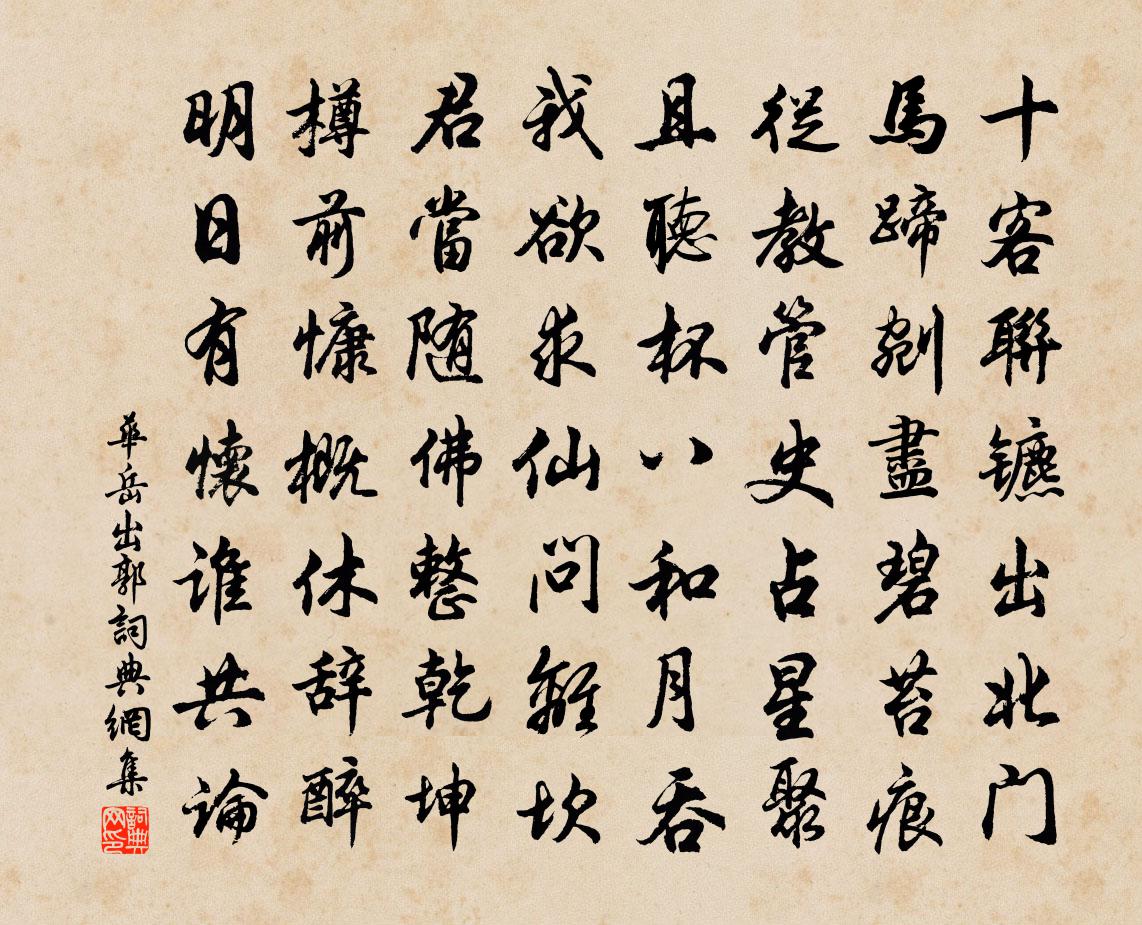 十客聯鑣出北门
馬蹄剗盡碧苔痕
從教管史占星聚
且聽杯八和月吞
我欲求仙问離坎
君當随佛整乾坤
樽前慷概休辞醉
明日有懷谁共論
華岳出郭詞典網集
詞典网印